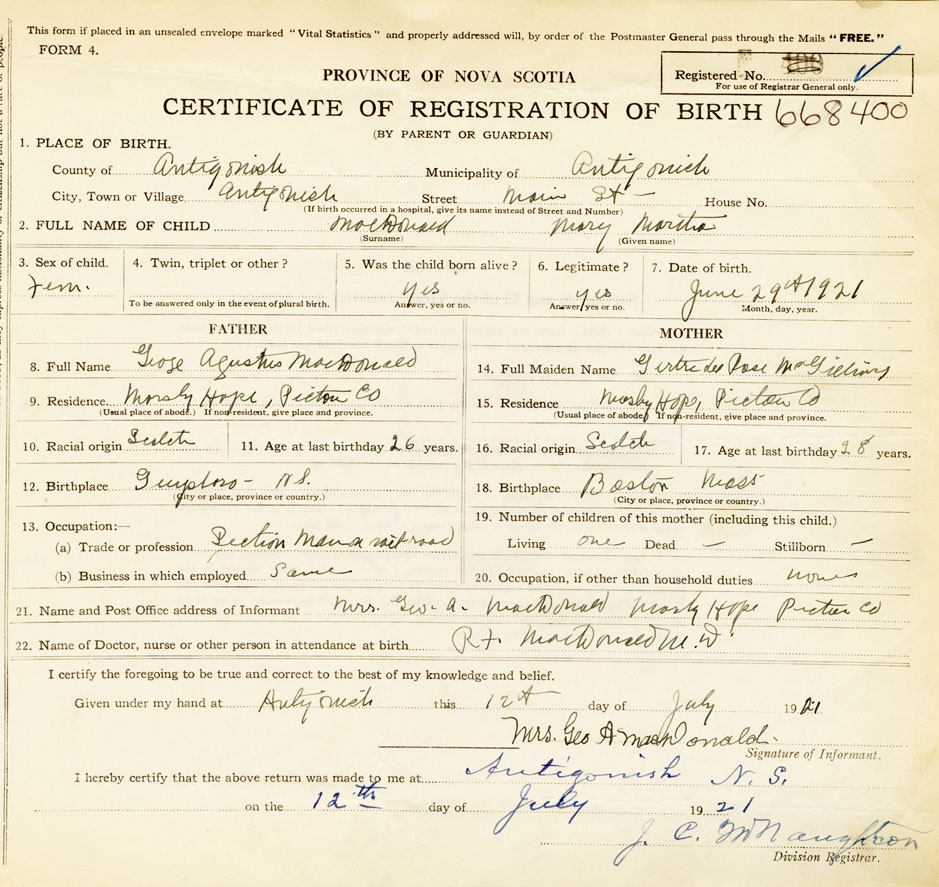 This form if placed in an unsealed envelope marked "Vital Statistics" and properly addressed will, by order of the Postmaster General pass through the Mails "FREE."
FORM 4.
PROVINCE OF NOVA SCOTIA
Registered No.
For use of Registrar General only.
CERTIFICATE OF REGISTRATION OF BIRTH 668400
(BY PARENT OR GUARDIAN)
1. PLACE OF BIRTH.
County of Antigonish Municipality of Antigonish
City, Town or Village Antigonish Street Main St - House No.
(If birth occurred in a hospital, give its name instead of Street and Number)
2. FULL NAME OF CHILD MacDonald Mary Martha
(Surname) (Given name)
3. Sex of child. 4. Twin, triplet or other? 5. Was the child born alive? 6. Legitimate? 7. Date of birth.
Fem. yes yes June 29th 1921
To be answered only in the event of plural birth. Answer, yes or no. Answer, yes or no. Month, day, year.
FATHER MOTHER
8. Full Name Geoge Agustus MacDonald
14. Full Maiden Name Gertrude Rose
9. Residence Hope, Pictou Co
(Usual place of abode.) If non-resident, give place and province.
15. Residence Hope, Pictou Co
(Usual place of abode.) If non-resident, give place and province.
10. Racial origin Scotch 11. Age at last birthday 26 years.
16. Racial origin Scotch 17. Age at last birthday 28 years.
12. Birthplace N.S.
(City or place, province or country.)
18. Birthplace Boston Mass
(City or place, province or country.)
13. Occupation:—
(a) Trade or profession Section Man railroad
(b) Business in which employed Same
19. Number of children of this mother (including this child.)
Living one Dead — Stillborn —
20. Occupation, if other than household duties none
21. Name and Post Office address of Informant Mrs. Geo. A. MacDonald Hope Pictou Co
22. Name of Doctor, nurse or other person in attendance at birth R.F. MacDonald M.D
I certify the foregoing to be true and correct to the best of my knowledge and belief.
Given under my hand at Antigonish this 12th day of July 1921
Mrs. Geo A MacDonald.
Signature of Informant.
I hereby certify that the above return was made to me at Antigonish N.S.
on the 12th day of July 1921
J. C. McNaughton
Division Registrar.